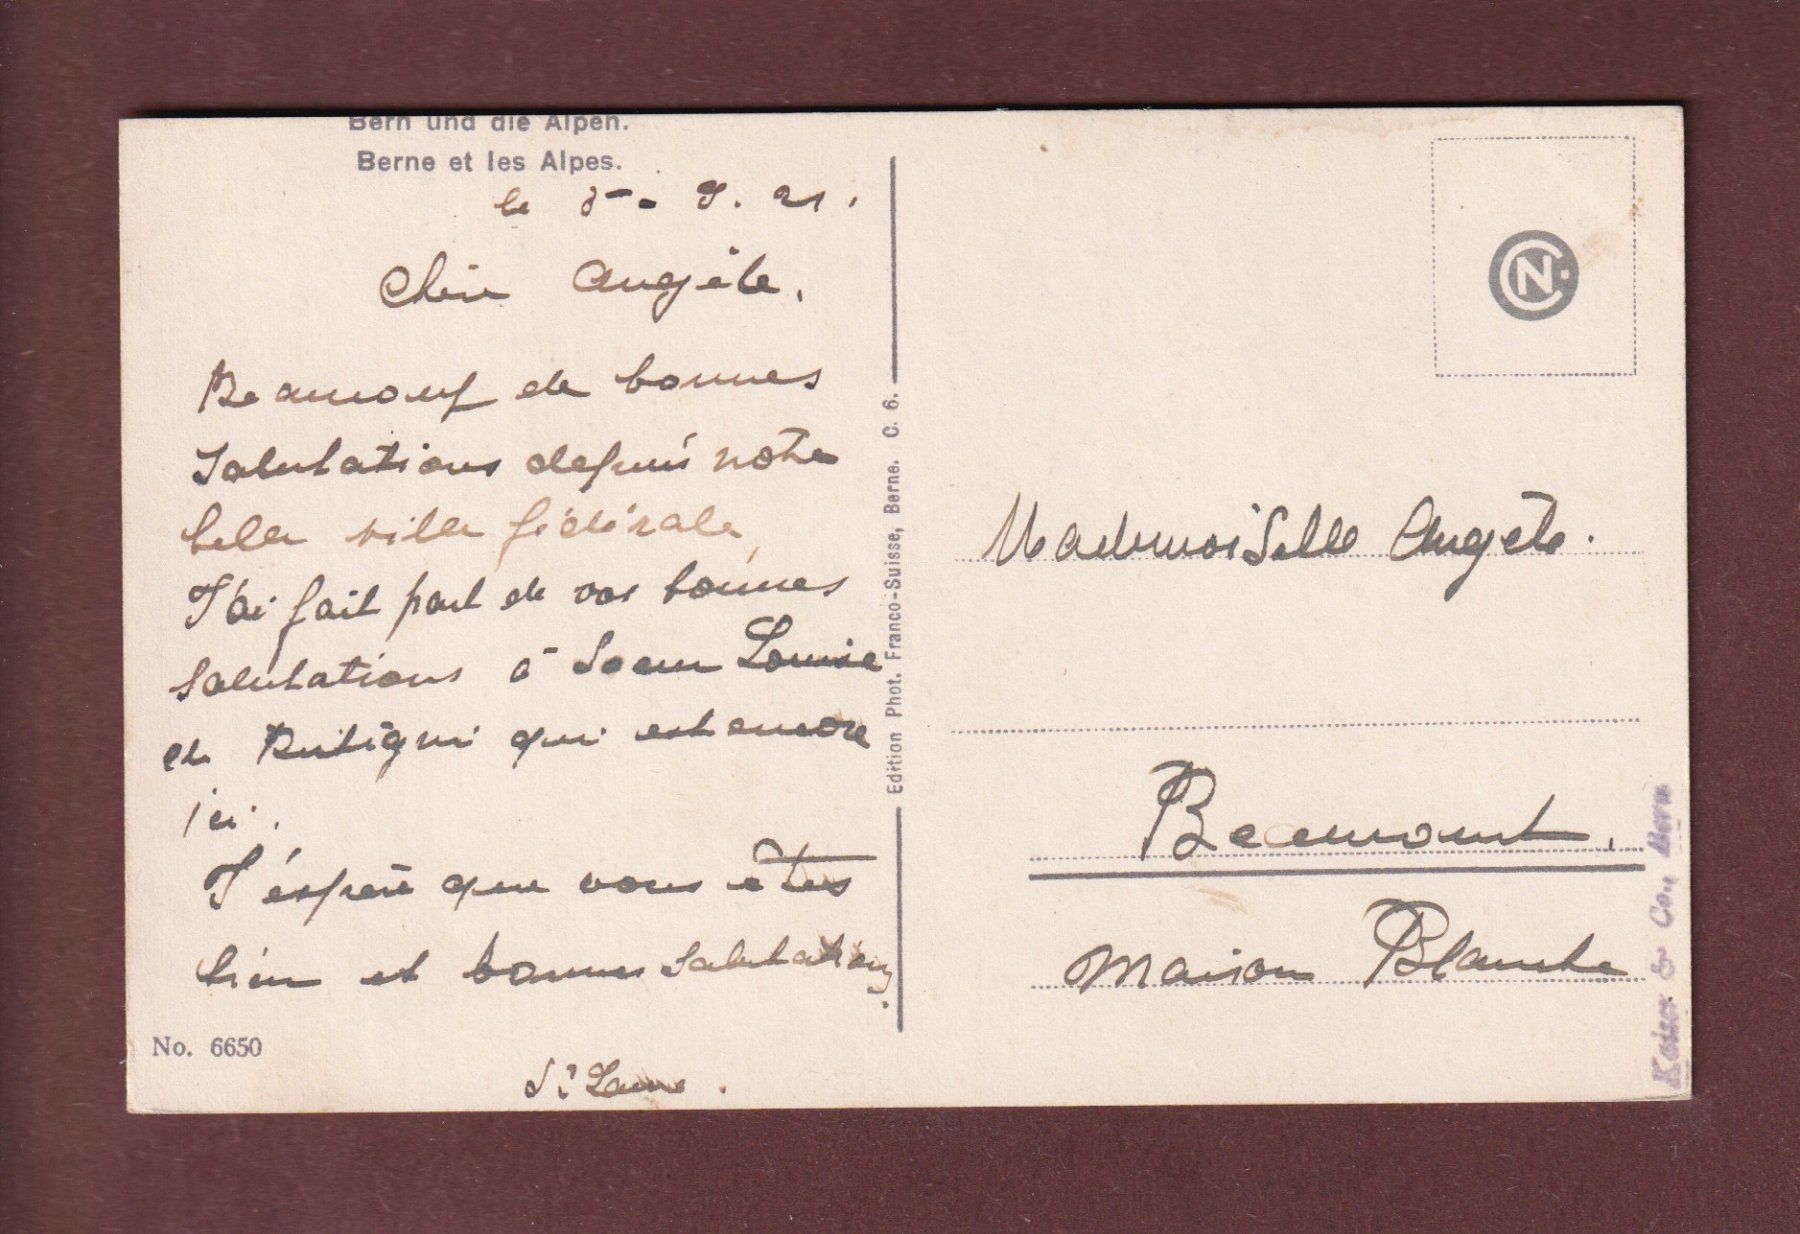 Bern und die Alpen.
Berne et les Alpes.
le 5 - 9. 21.
Chère Angèle,
Beaucoup de bonnes
Salutations depuis notre
belle ville fédérale,
J'ai fait part de vos bonnes
Salutations à Soeur Louise
de qui est encore
ici.
J'éspère que vous êtes
bien et bonnes Salutations
No. 6650
Edition Phot. Franco-Suisse, Berne. C. 6.
CN
Mademoiselle Angèle.
Beaumont.
Maison Blanche
Kaiser & Co., Bern